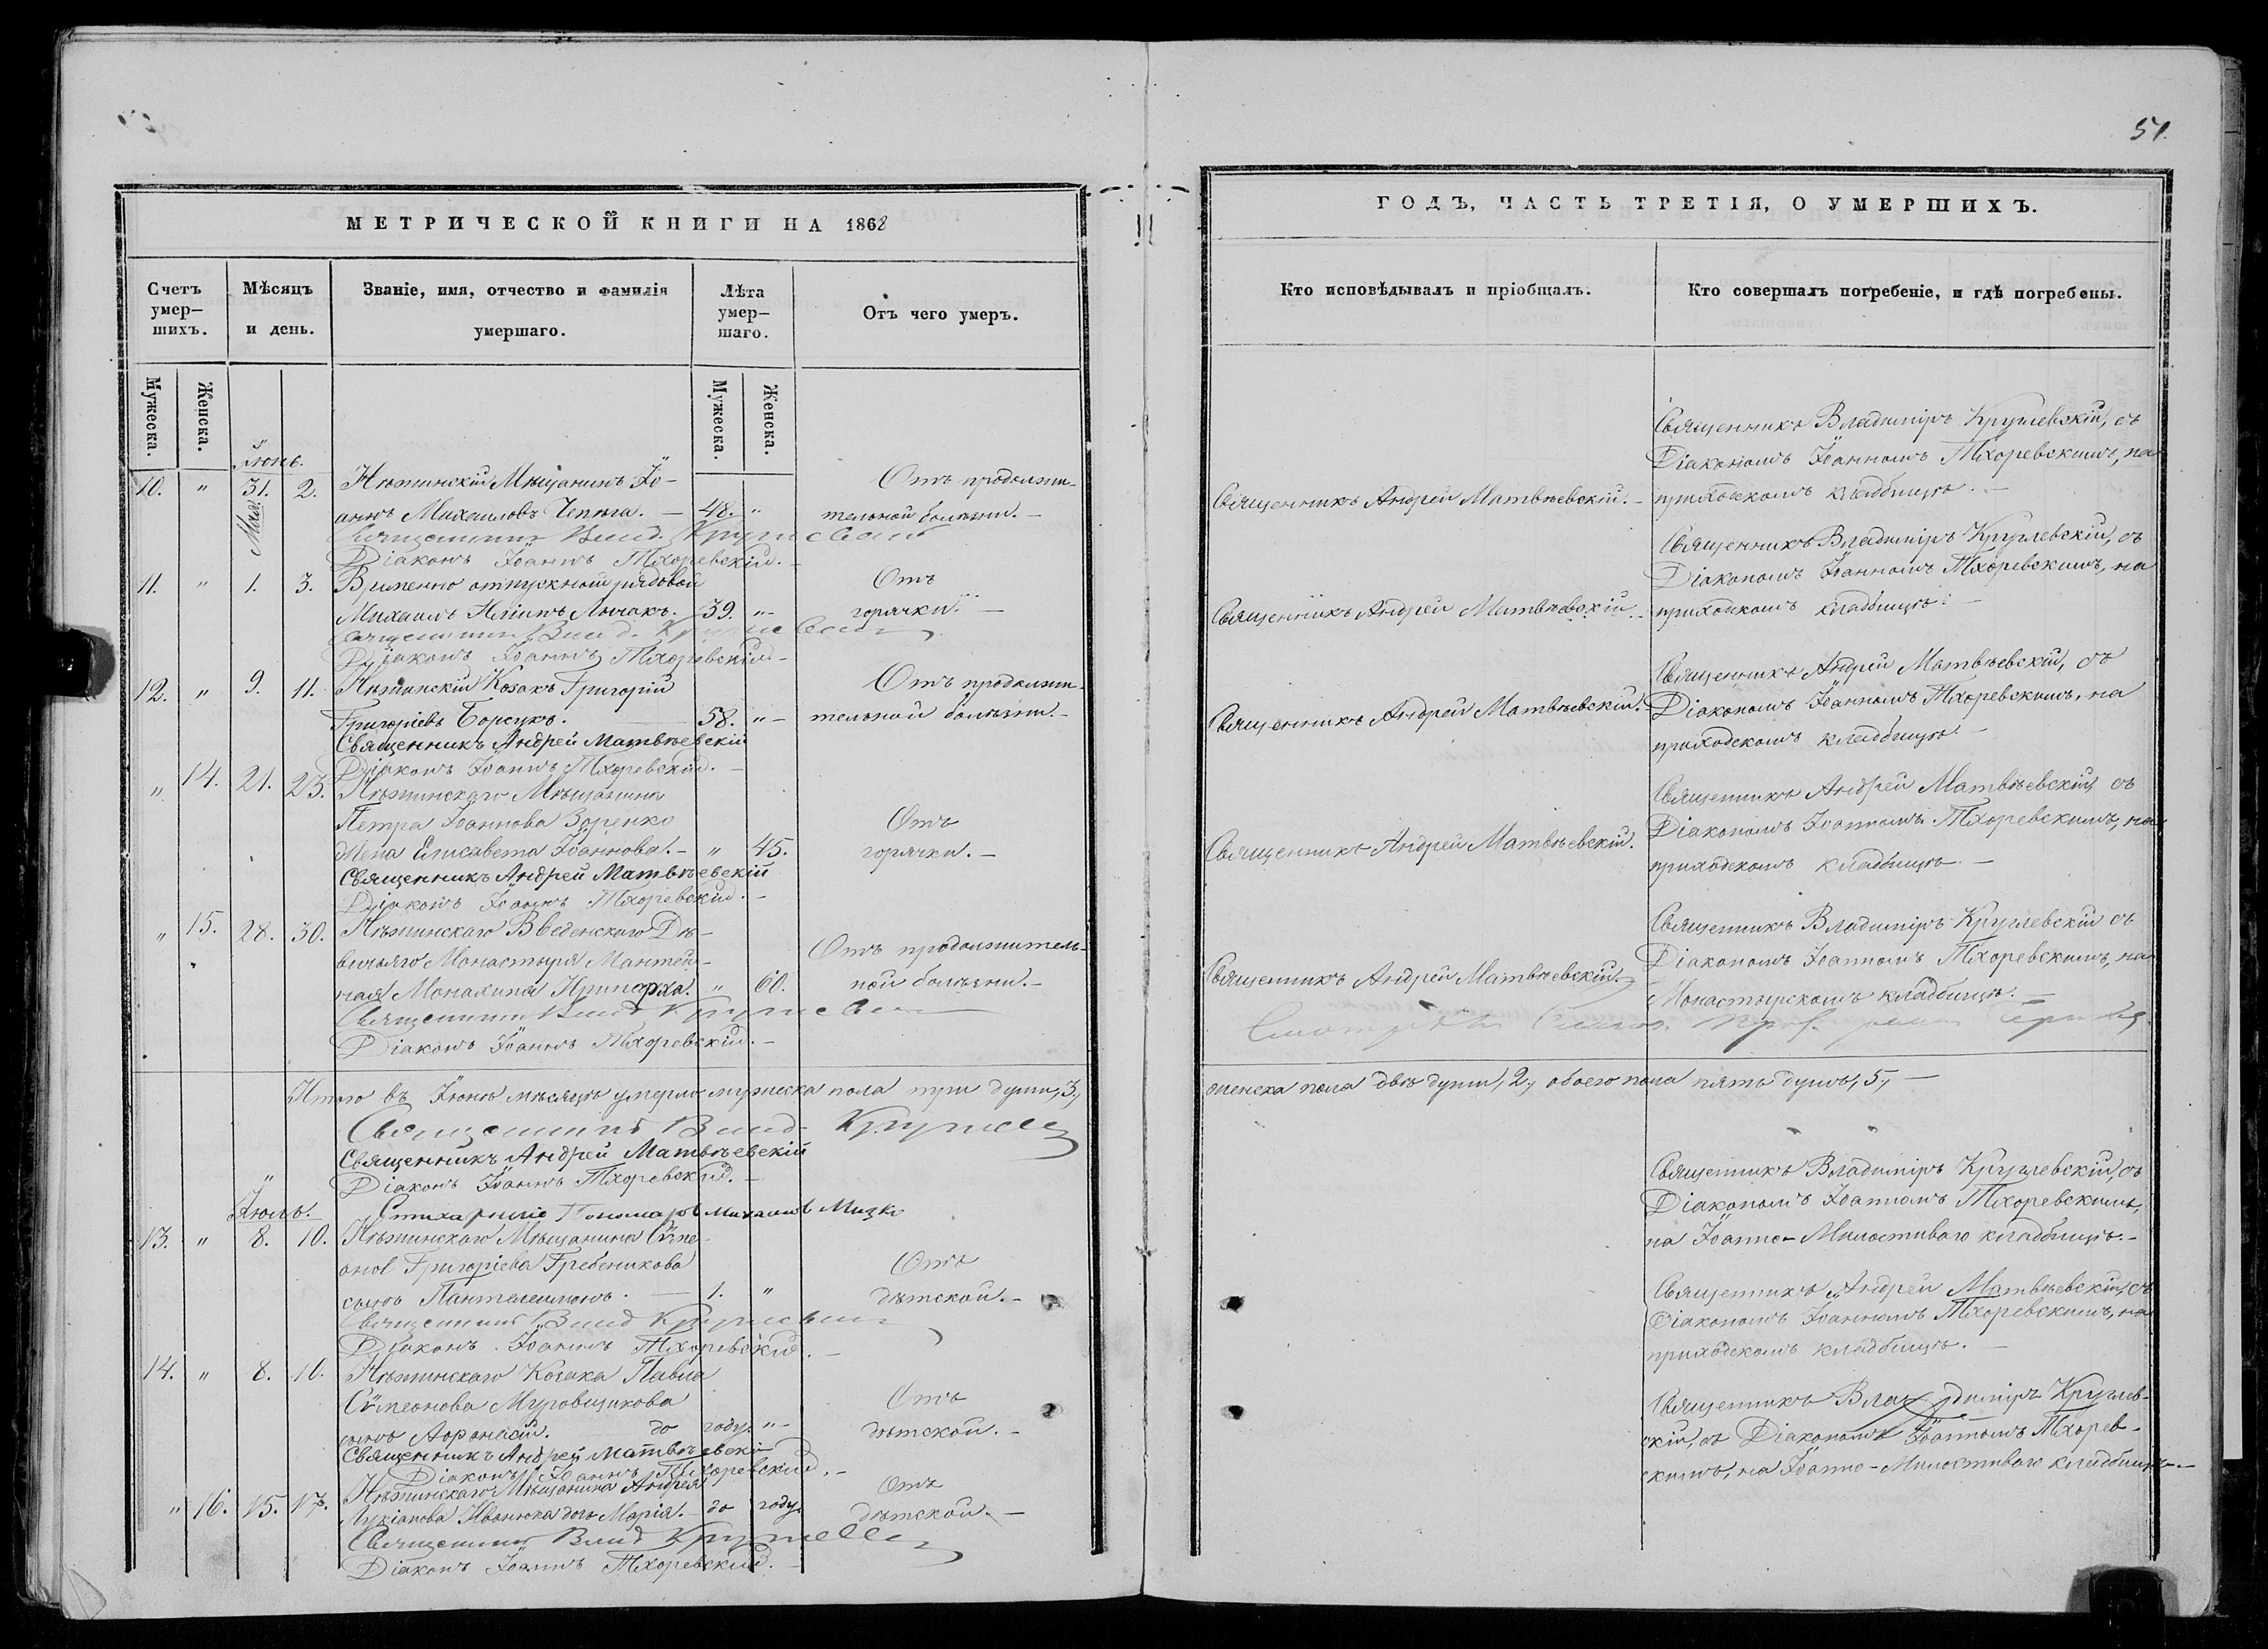 51.
МЕТРИЧЕСКОЙ КНИГИ НА 1862
ГОДЪ, ЧАСТЬ ТРЕТІЯ, О УМЕРШИХЪ.
Счетъ умер—шихъ.
Мѣсяцъ и день.
Званіе, имя, отчество и фамилія умершаго.
Лѣта умер—шаго.
Отъ чего умеръ.
Кто исповѣдывалъ и пріобщалъ.
Кто совершалъ погребеніе, и гдѣ погребены.
Мужеска.
Женска.
Мужеска.
Женска.
Іюнь.
10. " 31. 2. Нѣжинскій Мѣщанинъ Іо-
Мая
аннъ Михаиловъ Чепѣга. — 48. "
Отъ продолжи-
тельной болѣзни. —
Священникъ Андрей Матвѣевскій. —
Священникъ Владиміръ Круглевскій, съ
Діакономъ Іоанномъ Тхоревскимъ, на
приходскомъ кладбищѣ. —
Священникъ Влад. Круглевскій
Діаконъ Іоаннъ Тхоревскій. —
11. " 1. 3. Временно отпускной рядовой
Михаилъ Иліинъ Лючакъ. 39. "
Отъ
горячки. —
Священникъ Андрей Матвѣевскій.
Священникъ Владиміръ Круглевскій, съ
Діакономъ Іоанномъ Тхоревскимъ, на
приходскомъ кладбищѣ. —
Священникъ Влад. Круглевскій
Діаконъ Іоаннъ Тхоревскій. —
12. " 9. 11. Нѣжинскій Козакъ Григорій
Григоріевъ Борсукъ. 58. " —
Отъ продолжи-
тельной болѣзни. —
Священникъ Андрей Матвѣевскій.
Священникъ Андрей Матвѣевскій, съ
Діакономъ Іоанномъ Тхоревскимъ, на
приходскомъ кладбищѣ. —
Священникъ Андрей Матвѣевскій
Діаконъ Іоаннъ Тхоревскій. —
" 14. 21. 23. Нѣжинскаго Мѣщанина
Петра Іоаннова Зоренко
жена Елисавета Іоаннова. — " 45.
Отъ
горячки. —
Священникъ Андрей Матвѣевскій.
Священникъ Андрей Матвѣевскій, съ
Діакономъ Іоанномъ Тхоревскимъ, на
приходскомъ кладбищѣ. —
Священникъ Андрей Матвѣевскій
Діаконъ Іоаннъ Тхоревскій. —
" 15. 28. 30. Нѣжинскаго Введенскаго Дѣ-
вичьяго Монастыря Мантей-
ная Монахиня Иринарха. " 60.
Отъ продолжитель-
ной болѣзни. —
Священникъ Андрей Матвѣевскій.
Священникъ Владиміръ Круглевскій съ
Діакономъ Іоанномъ Тхоревскимъ, на
Монастырскомъ кладбищѣ. —
Священникъ Влад Круглевскій
Діаконъ Іоаннъ Тхоревскій. —
Итого въ Іюнѣ мѣсяцѣ умерло мужеска пола три души, 3,
женска пола двѣ души, 2, обоего пола пять душъ, 5, —
Священникъ Влад Круглевскій
Священникъ Андрей Матвѣевскій
Діаконъ Іоаннъ Тхоревскій. —
Стихарный Пономарь Михаилъ Мизко
Іюль.
13. " 8. 10. Нѣжинскаго Мѣщанина Сѵме-
она Григоріева Гребеникова
сынъ Пантелеимонъ. — 1. "
Отъ
дѣтской. —
Священникъ Владиміръ Круглевскій, съ
Діакономъ Іоанномъ Тхоревскимъ,
на Іоанно-Милостиваго кладбищѣ. —
Священникъ Влад Круглевскій
Діаконъ Іоаннъ Тхоревскій. —
14. " 8. 10. Нѣжинскаго Козака Павла
Сѵмеонова Муровщикова
сынъ Аѳанасій. до году. " —
Отъ
дѣтской. —
Священникъ Андрей Матвѣевскій, съ
Діакономъ Іоанномъ Тхоревскимъ, на
приходскомъ кладбищѣ. —
Священникъ Андрей Матвѣевскій
Діаконъ Іоаннъ Тхоревскій. —
" 16. 15. 17. Нѣжинскаго Мѣщанина Андрея
Лукіанова Иванюка дочь Марія. — до году.
Отъ
дѣтской. —
Священникъ Владиміръ Круглев-
скій, съ Діакономъ Іоанномъ Тхорев-
скимъ, на Іоанно-Милостиваго кладбищѣ. —
Священникъ Влад Круглевскій
Діаконъ Іоаннъ Тхоревскій. —